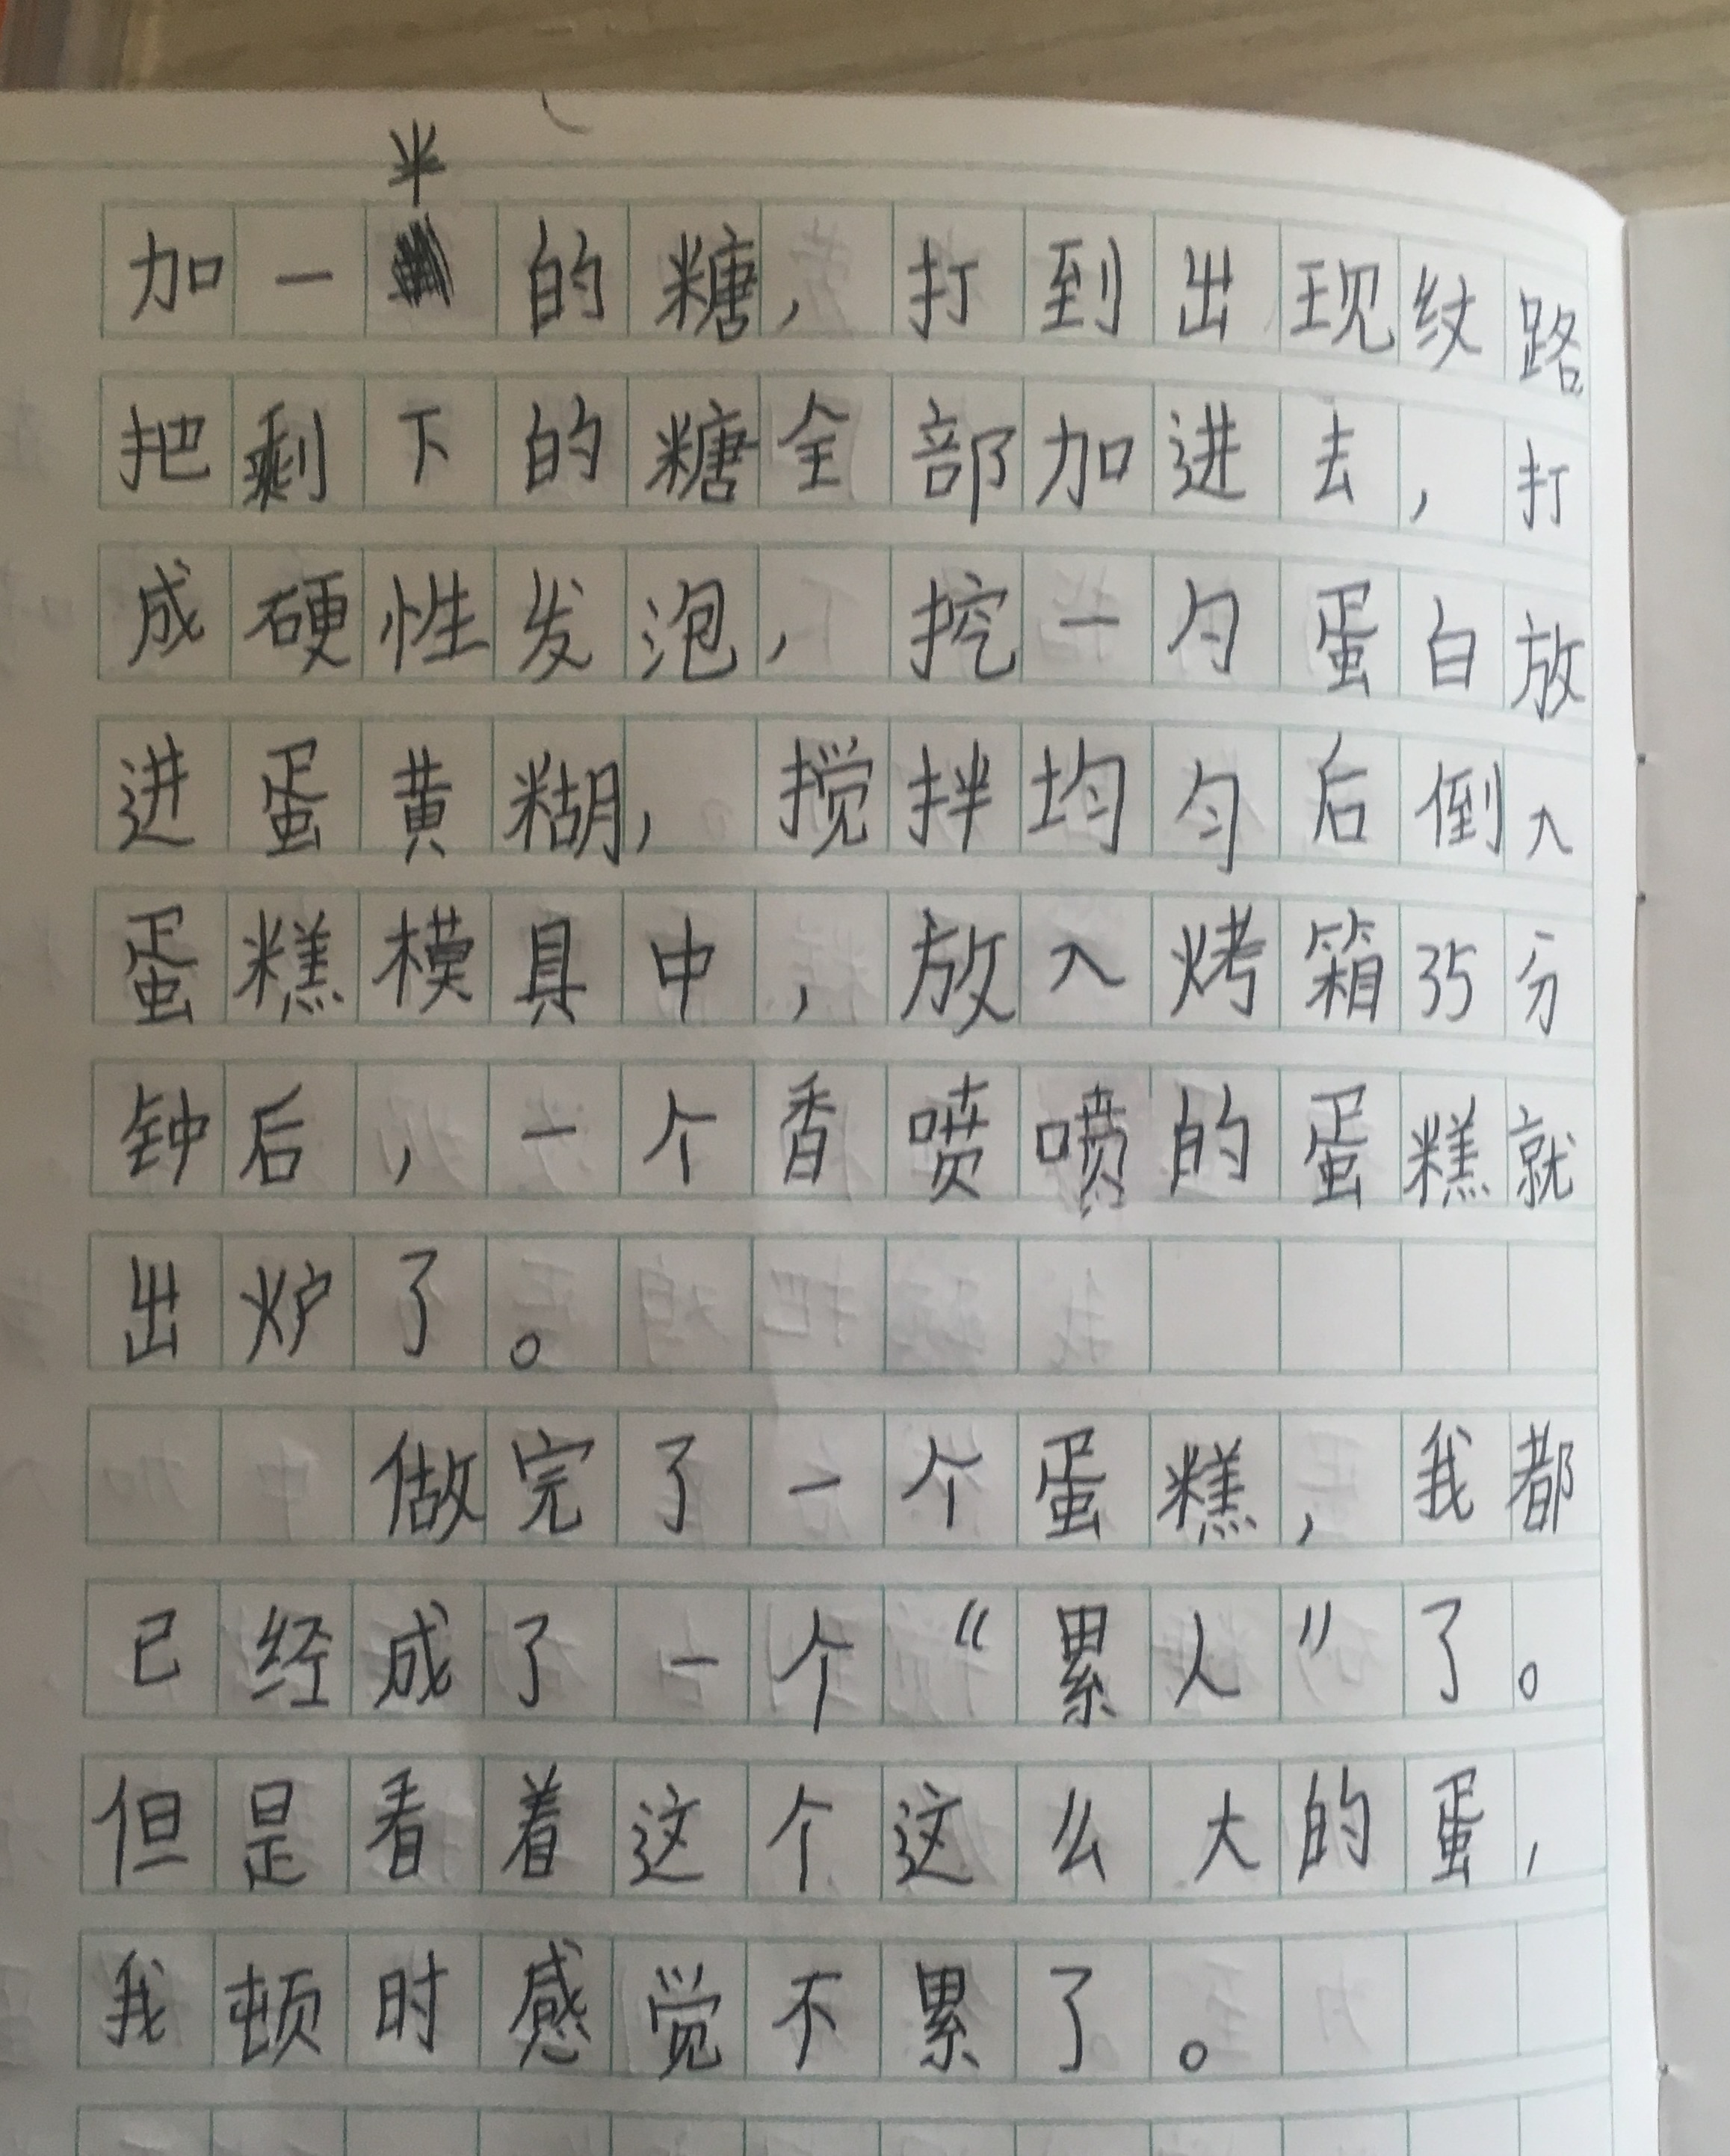 加一半的糖，打到出现纹路
把剩下的糖全部加进去，打
成硬性发泡，挖一勺蛋白放
进蛋黄糊，搅拌均匀后倒入
蛋糕模具中，放入烤箱35分
钟后，一个香喷喷的蛋糕就
出炉了。
做完了一个蛋糕，我都
已经成了一个“累人”了。
但是看着这个这么大的蛋，
我顿时感觉不累了。